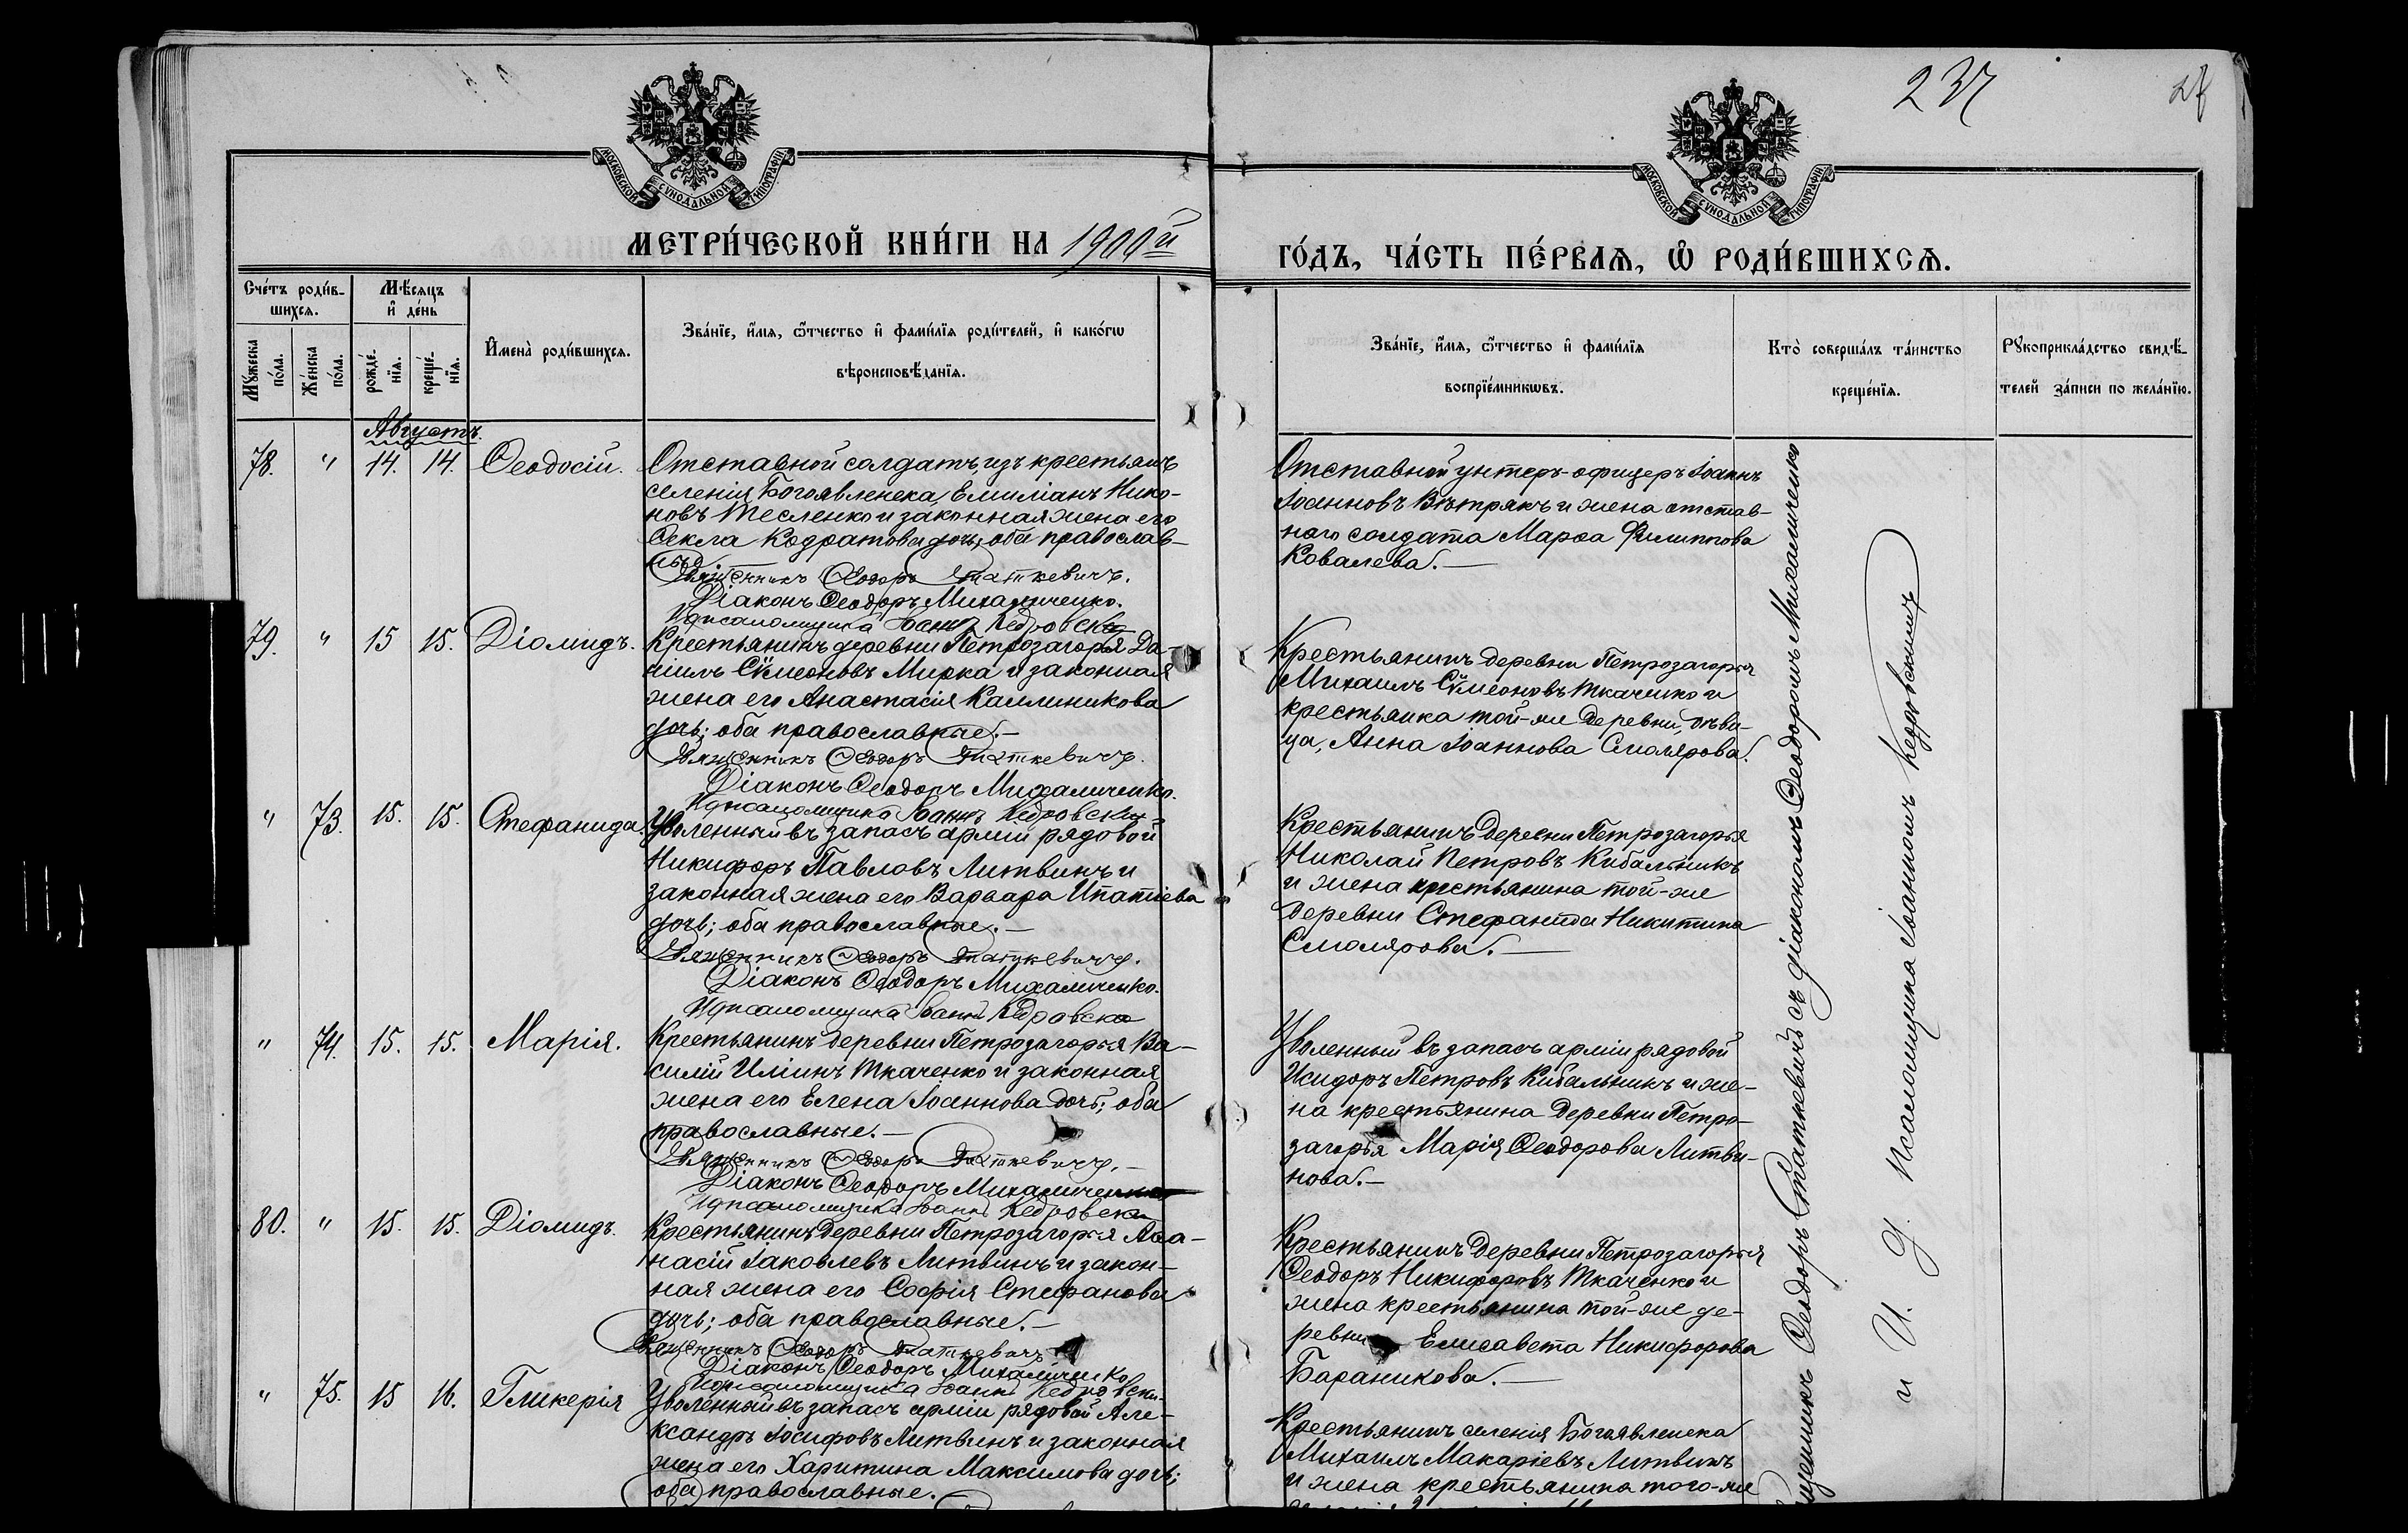 237
27
МОСКОВСКОЙ СѴНОДАЛЬНОЙ ТИПОГРАФІИ
МОСКОВСКОЙ СѴНОДАЛЬНОЙ ТИПОГРАФІИ
МЕТРИ́ЧЕСКОЙ КНИ́ГИ НА 1900й
ГО́ДЪ, ЧА́СТЬ ПЕ́РВАѦ, Ѡ҆ РОДИ́ВШИХСѦ.
Сче́тъ роди́в-
шихсѧ.
Мѣ́сѧцъ
и҆ де́нь
Мꙋ́жеска
по́ла.
Же́нска
по́ла.
рожде́-
нїѧ.
креще́-
нїѧ.
И҆мена̀ роди́вшихсѧ.
Зва́нїе, и҆́мѧ, ѻ҆́тчество и҆ фами́лїѧ роди́телей, и҆ како́гѡ
вѣроисповѣ́данїѧ.
Зва́нїе, и҆́мѧ, ѻ҆́тчество и҆ фами́лїѧ
воспрїе́мникѡвъ.
Кто̀ соверша́лъ та́инство
креще́нїѧ.
Рꙋкоприкла́дство свидѣ́-
телей за́писи по жела́нїю.
Августъ.
78. " 14. 14. Ѳеодосій.
Отставной солдатъ, изъ крестьянъ
селенія Богоявленска Емиліанъ Нико-
новъ Тесленко и законная жена его
Ѳекла Кодратова дочь; оба православ-
ные.
Священникъ Ѳеодоръ Статкевичъ.
Діаконъ Ѳеодоръ Михаличенко.
И д псаломщика Іоаннъ Кедровскій
Отставной унтеръ-офицеръ Іоаннъ
Іоанновъ Вѣтрякъ и жена отстав-
наго солдата Марѳа Филиппова
Ковалева.—
79. " 15 15. Діомидъ.
Крестьянинъ деревни Петрозагорья Да-
ніилъ Сѵмеоновъ Мирка и законная
жена его Анастасія Каллиникова
дочь; оба православные.—
Священникъ Ѳеодоръ Статкевичъ.
Діаконъ Ѳеодоръ Михаличенко.
И д псаломщика Іоаннъ Кедровскій
Крестьянинъ деревни Петрозагорья
Михаилъ Сѵмеоновъ Ткаченко и
крестьянка той-же деревни, дѣви-
ца, Анна Іоаннова Смолярова.
" 73. 15. 15. Стефанида.
Уволенный въ запасъ арміи рядовой
Никифоръ Павловъ Литвинъ и
законная жена его Варвара Ипатіева
дочь; оба православные.—
Священникъ Ѳеодоръ Статкевичъ.
Діаконъ Ѳеодоръ Михаличенко.
И д псаломщика Іоаннъ Кедровскій
Крестьянинъ деревни Петрозагорья
Николай Петровъ Кибальникъ
и жена крестьянина той-же
деревни Стефанида Никитина
Смолярова.—
" 74. 15. 15. Марія.
Крестьянинъ деревни Петрозагорья Ва-
силій Иліинъ Ткаченко и законная
жена его Елена Іоаннова дочь; оба
православные.—
Священникъ Ѳеодоръ Статкевичъ.—
Діаконъ Ѳеодоръ Михаличенко
И д псаломщика Іоаннъ Кедровскій
Уволенный въ запасъ арміи рядовой
Исидоръ Петровъ Кибальникъ и же-
на крестьянина деревни Петро-
загорья Марія Ѳеодорова Литви-
нова.—
80. " 15. 15. Діомидъ.
Крестьянинъ деревни Петрозагорья Аѳа-
насій Іаковлевъ Литвинъ и закон-
ная жена его Софія Стефанова
дочь; оба православные.—
Священникъ Ѳеодоръ Статкевичъ
Діаконъ Ѳеодоръ Михаличенко
И д псаломщика Іоаннъ Кедровскій
Крестьянинъ деревни Петрозагорья
Ѳеодоръ Никифоровъ Ткаченко и
жена крестьянина той-же де-
ревни Елисавета Никифорова
Бараникова.—
" 75. 15 16. Гликерія
Уволенный въ запасъ арміи рядовой Але-
ксандръ Іосифовъ Литвинъ и законная
жена его Харитина Максимова дочь;
оба православные.—
Крестьянинъ селенія Богоявленска
Михаилъ Макаріевъ Литвинъ
и жена крестьянина того-же
Священникъ Ѳеодоръ Статкевичъ съ діакономъ Ѳеодоромъ Михаличенко
и И. д. псаломщика Іоанномъ Кедровскимъ